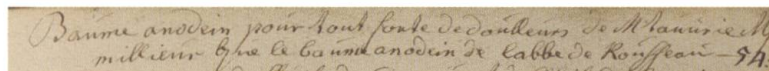 Baume anodein pour tout sorte de doulleurs de M
millieur que le baume anodein de labbe de Rousseau — 54